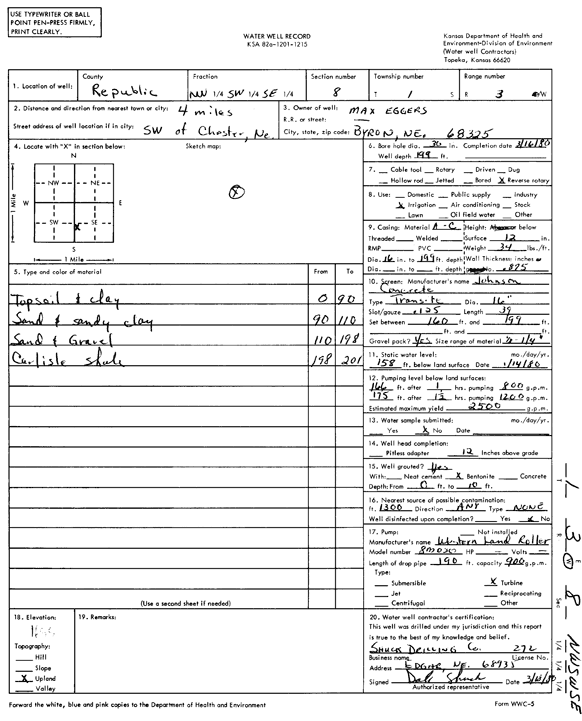 USE TYPEWRITER OR BALL
POINT PEN-PRESS FIRMLY,
PRINT CLEARLY.
WATER WELL RECORD
KSA 82a-1201-1215
Kansas Department of Health and
Environment-Division of Environment
(Water well Contractors)
Topeka, Kansas 66620
1. Location of well: County Republic Fraction NW 1/4 SW 1/4 SE 1/4 Section number 8 Township number T 1 S Range number R 3 W
2. Distance and direction from nearest town or city: 4 miles
Street address of well location if in city: SW of Chester, Ne.
3. Owner of well: MAX EGGERS
R.R. or street: —
City, state, zip code: BYRON, NE. 68325
4. Locate with "X" in section below: Sketch map:
N
NW NE
W E
SW SE
X
S
1 Mile
1 Mile
5. Type and color of material From To
Topsoil & clay 0 90
Sand & sandy clay 90 110
Sand & Gravel 110 198
Carlisle Shale 198 201
(Use a second sheet if needed)
6. Bore hole dia. 30 in. Completion date 3/16/80
Well depth 199 ft.
7. Cable tool Rotary Driven Dug
Hollow rod Jetted Bored X Reverse rotary
8. Use: Domestic Public supply Industry
X Irrigation Air conditioning Stock
Lawn Oil field water Other
9. Casing: Material A-C Height: below
Threaded Welded Surface 12 in.
RMP PVC Weight 34 lbs./ft.
Dia. 16 in. to 199 ft. depth Wall Thickness: inches
Dia. in. to ft. depth .875
10. Screen: Manufacturer's name Johnson
Concrete
Type Transite Dia. 16"
Slot/gauze .125 Length 39
Set between 160 ft. and 199 ft.
ft. and ft.
Gravel pack? Yes Size range of material
11. Static water level: mo./day/yr.
158 ft. below land surface Date 1/14/80
12. Pumping level below land surfaces:
166 ft. after 1 hrs. pumping 800 g.p.m.
175 ft. after 12 hrs. pumping 1200 g.p.m.
Estimated maximum yield 2500 g.p.m.
13. Water sample submitted: mo./day/yr.
Yes X No Date
14. Well head completion:
Pitless adapter 12 Inches above grade
15. Well grouted? Yes
With: Neat cement X Bentonite Concrete
Depth: From 0 ft. to 10 ft.
16. Nearest source of possible contamination:
ft. 1300 Direction ANY Type NONE
Well disinfected upon completion? Yes X No
17. Pump: Not installed
Manufacturer's name Western Land Roller
Model number HP — Volts —
Length of drop pipe 190 ft. capacity 900 g.p.m.
Type:
Submersible X Turbine
Jet Reciprocating
Centrifugal Other
18. Elevation:
Topography:
Hill
Slope
X Upland
Valley
19. Remarks:
20. Water well contractor's certification:
This well was drilled under my jurisdiction and this report
is true to the best of my knowledge and belief.
SHUCK DRILLING Co. 272
Business name License No.
Address EDGAR, NE. 68935
Signed Dale Shuck Date
Authorized representative
Forward the white, blue and pink copies to the Department of Health and Environment
Form WWC-5
T 1 R 3 E W Sec 8 1/4 1/4 1/4 NWSWSE